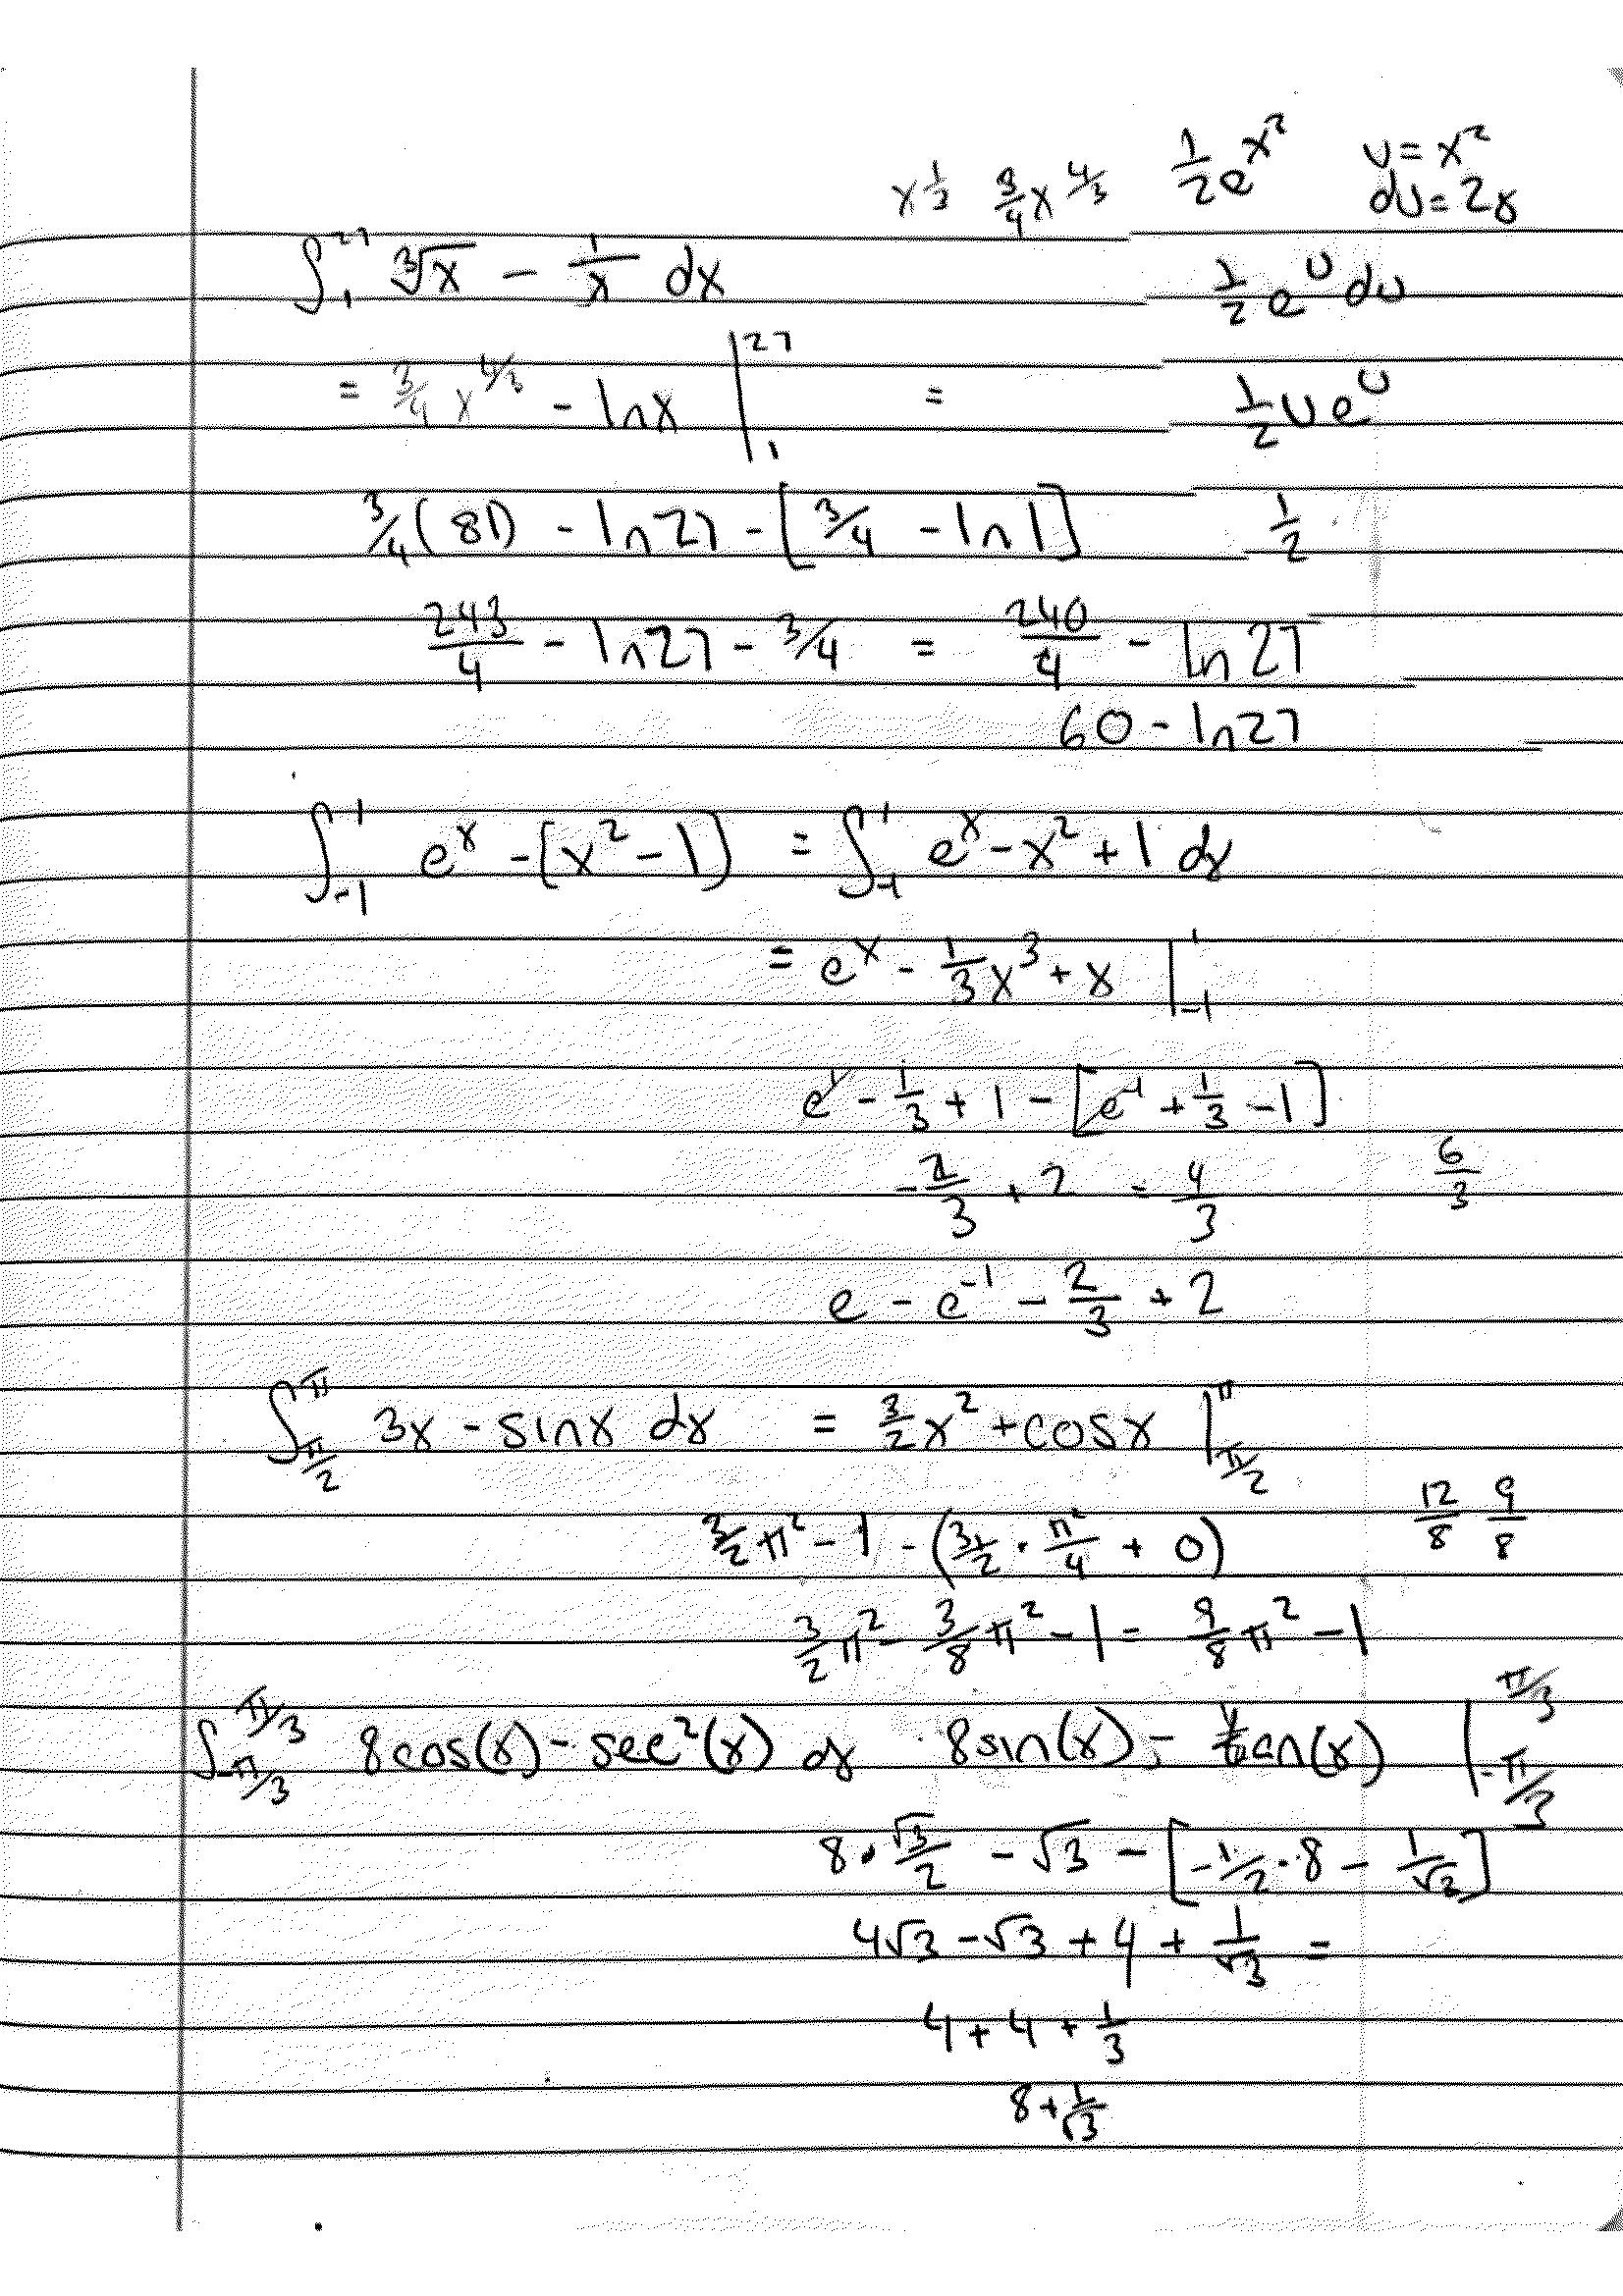 x^{1/3} 3/4 x^{4/3} 1/2 e^{x^2} u = x^2
du = 2x
∫_1^{27} ∛x - 1/x dx 1/2 e^u du
= 3/4 x^{4/3} - ln x |_1^{27} = 1/2 u e^u
3/4 (81) - ln 27 - [3/4 - ln 1] 1/2
243/4 - ln 27 - 3/4 = 240/4 - ln 27
60 - ln 27
∫_{-1}^1 e^x - [x^2 - 1] = ∫_{-1}^1 e^x - x^2 + 1 dx
= e^x - 1/3 x^3 + x |_{-1}^1
e^1 - 1/3 + 1 - [e^{-1} + 1/3 - 1]
-2/3 + 2 = 4/3 6/3
e - e^{-1} - 2/3 + 2
∫_{π/2}^π 3x - sin x dx = 3/2 x^2 + cos x |_{π/2}^π
3/2 π^2 - 1 - (3/2 · π^2/4 + 0) 12/8 9/8
3/2 π^2 - 3/8 π^2 - 1 = 9/8 π^2 - 1
∫_{-π/3}^{π/3} 8cos(x) - sec^2(x) dx 8sin(x) - tan(x) |_{-π/3}^{π/3}
8 · √3/2 - √3 - [-1/2 · 8 - 1/√3]
4√3 - √3 + 4 + 1/√3 =
4 + 4 + 1/3
8 + 1/√3